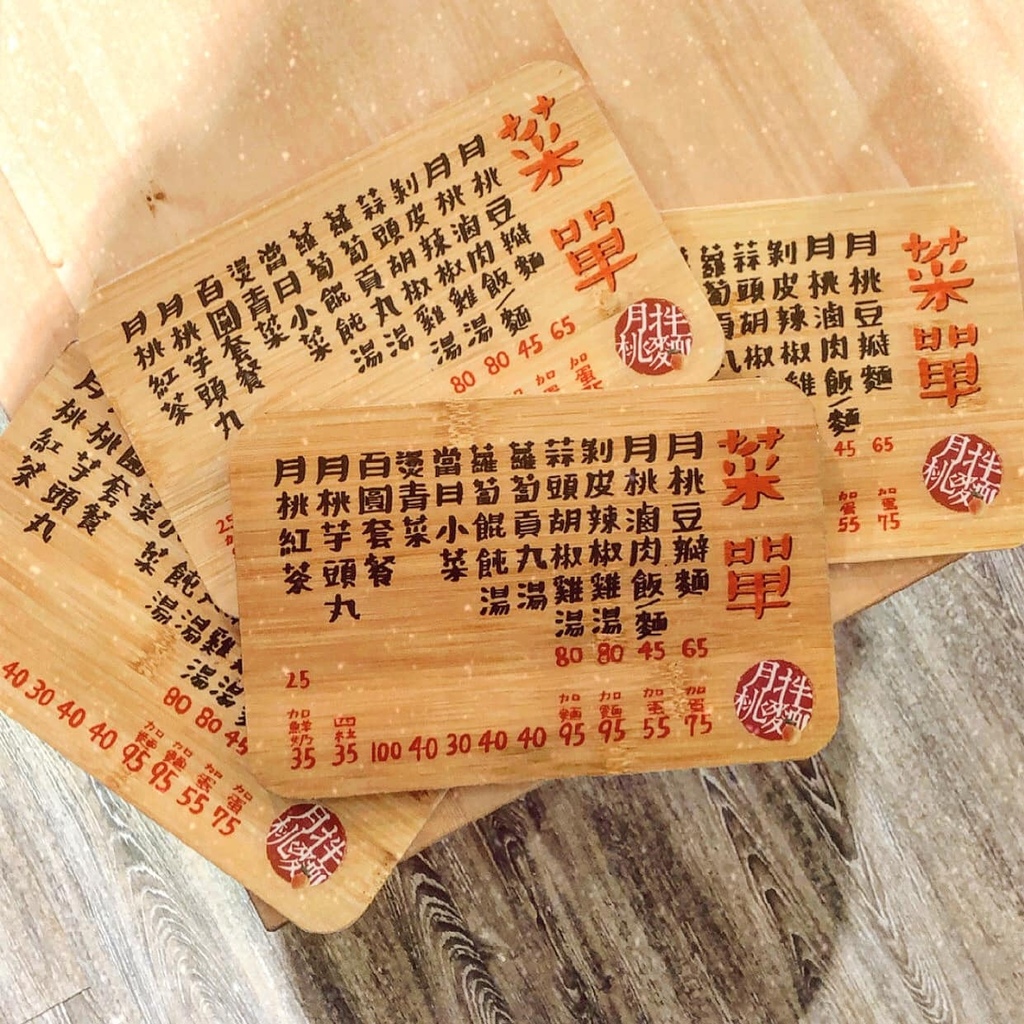 菜單
月桃豆瓣麵 65
月桃滷肉飯/麵 45
剝皮辣椒雞湯 80
蒜頭胡椒雞湯 80
蘿蔔貢丸湯
蘿蔔餛飩湯
當日小菜
燙青菜
百圓套餐
月桃芋頭丸
月桃紅茶 25
月桃拌麵
菜單
月桃豆瓣麵 65 加蛋75
月桃滷肉飯/麵 45 加蛋55
剝皮辣椒雞
蒜頭胡椒
蘿蔔貢丸
月桃拌麵
菜單
月桃豆瓣麵 65 加蛋75
月桃滷肉飯/麵 45 加蛋55
剝皮辣椒雞湯 80 加麵95
蒜頭胡椒雞湯 80 加麵95
蘿蔔貢丸湯 40
蘿蔔餛飩湯 40
當日小菜 30
燙青菜 40
百圓套餐 100
月桃芋頭丸 四粒35
月桃紅茶 25 加鮮奶35
月桃拌麵
加蛋75
45 加蛋55
80 加麵95
80 加麵95
40
40
30
40
圓套餐
桃芋頭丸
月桃紅茶
月桃拌麵